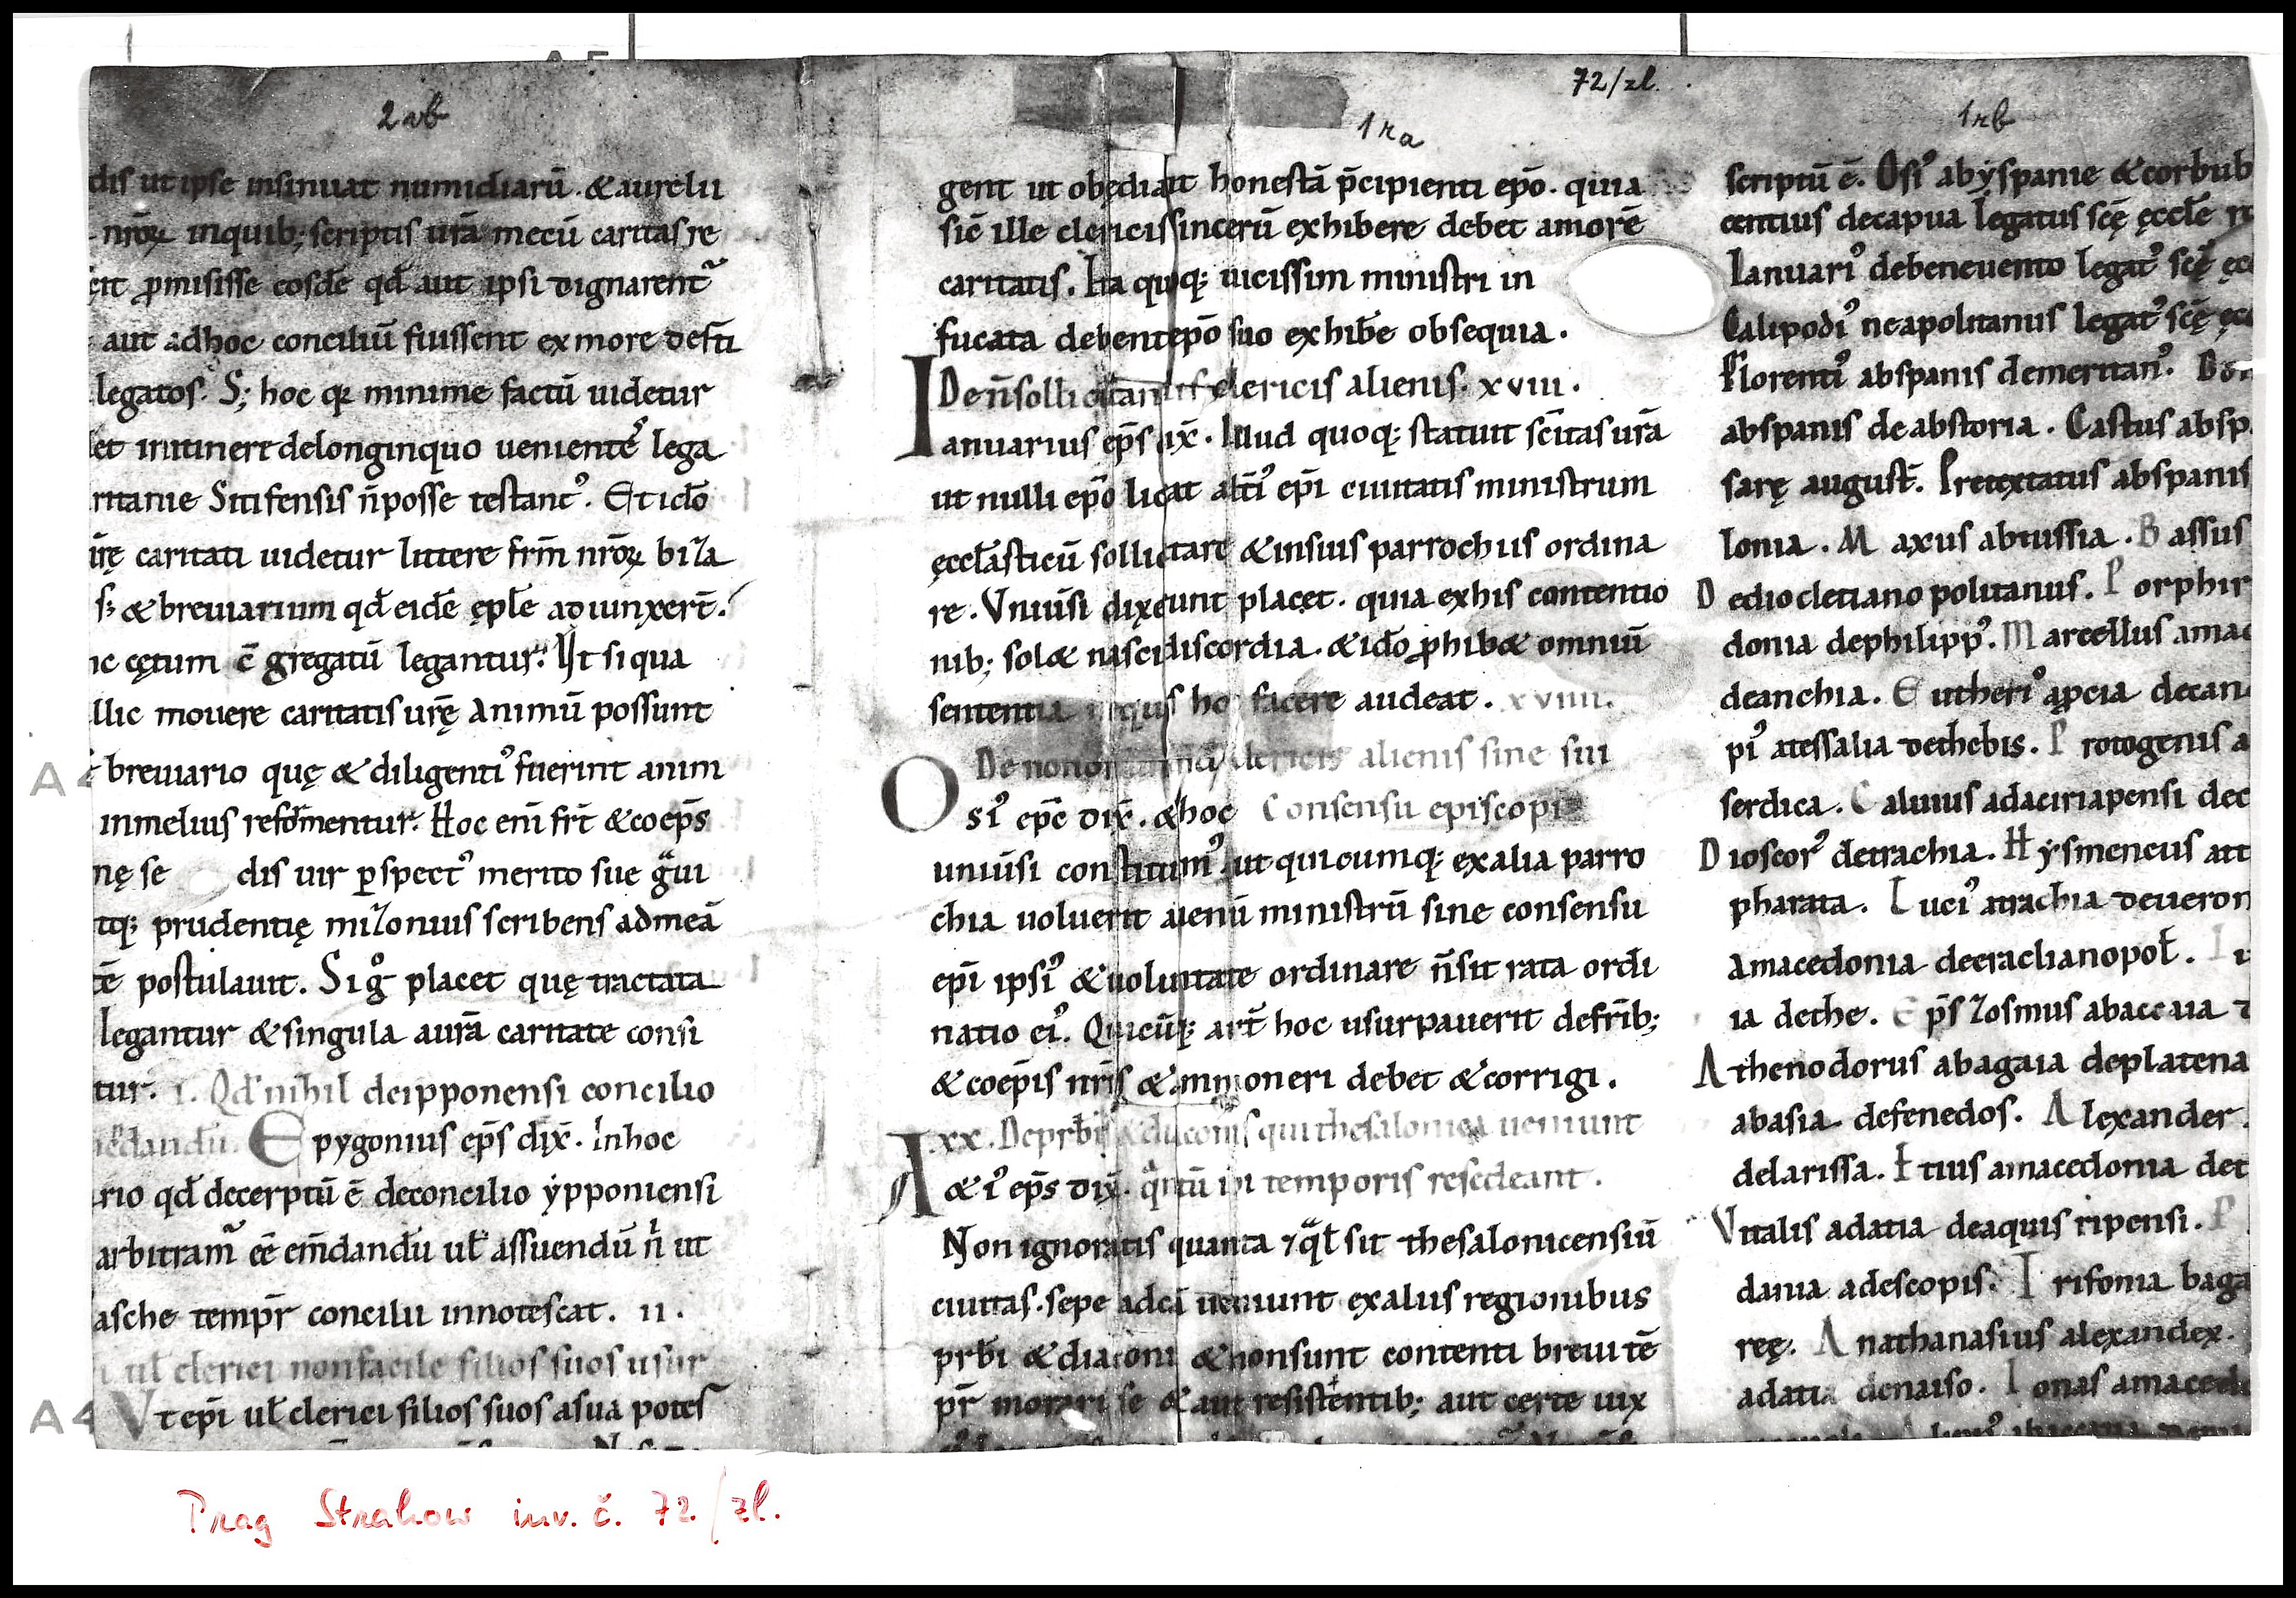 72/zl.
2vb
dis ut ipse insinuat numidiarū. & aurelii
nrōꝝ inquib; scriptis urā mecū caritas re
ꝓmisisse eosdē qd̄ aut ipsi dignarent᷑
aut adhoc conciliū fuissent exmore desti
legatos. S; hoc qꝫ minime factū uidetur
et initinere delonginquo uenientes lega
ritanie Sitifensis n̄posse testant᷒. Et idō
urę caritati uidetur littere frm̄ nrōꝝ biza
& breuiarium qd̄ eidē ęplē adiunxert̄.
cętum c̄gregatū legantur. Ut siqua
llic mouere caritatis urę animū possunt
breuiario quę & diligenti᷒ fuerint anim
inmelius reformentur. Hoc eni frt̄ & coep̄s
nę se dis uir ꝑspect᷒ merito sue gͣui
tqꝫ prudentię mizonius scribens admeā
tē postulauit. Si gͦ placet quę tractata
legantur & singula aurā caritate consi
tur. i. Qd̄ nihil deipponensi concilio
Epygonius ep̄s dix̄. Inhoc
rio qd̄ decerptū ē deconcilio ẏpponiensi
arbitram᷑ eē em̄dandū ul̄ assuendū n̄ ut
asche tempr̄ concilii innotescat. ii.
ul̄ clerici nonfacile filios suos usur
Vt ep̄i ul̄ clerici filios suos asua potes
1ra
gent ut obędiant honestā p̄cipienti epō. quia
sic̄ ille clericis sincerū exhibere debet amorē
caritatis. Ita quoqꝫ uicissim ministri in
fucata debent epō suo exhibē obsequia.
De n̄ sollicitandis clericis alienis. xviii.
Ianuarius ep̄s dix̄. Illud quoqꝫ statuit sc̄itas urā
ut nulli epō liceat alti᷒ ep̄i ciuitatis ministrum
ęccl̄asticū sollicitare & insuis parrochiis ordina
re. Vniūsi dixerunt placet. quia exhis contentio
nib; sol& nasci discordia. & idō ꝓhib& omniū
sententia nequis hoc facere audeat. xviiii.
De non clericis alienis sine sui
Osi᷒ epc̄ dix̄. & hoc Consensu episcopi
uniūsi constituim᷒. ut quicumqꝫ exalia parro
chia uoluerit alienū ministrū sine consensu
ep̄i ipsi᷒ & uoluntate ordinare n̄sit rata ordi
natio ei᷒. Quicūqꝫ art̄ hoc usurpauerit defrīb;
& coep̄is nr̄is & ammoneri debet & corrigi.
xx. De prb̄is & diaconis qui thesalonica ueniunt
A&i᷒ ep̄s dix̄. qͣntū ibi temporis resedeant.
Non ignoratis quanta & qͣl̄ sit thesalonicensiū
ciuitas. sepe adeā ueniunt exaliis regionibus
prb̄i & diaconi & nonsunt contenti breui tē
pr̄ morari se & aut resistentib; aut certe uix
1rb
scriptū ē. Osi᷒ abẏspanie & corbub
centius decapua legatus scę̄ ęccl̄e
Ianuari᷒ debeneuento legat᷒ scę̄
Calipodi᷒ neapolitanus legat᷒ scę̄
Florenti᷒ abspanis demeritan᷒.
abspanis deabstoria. Castus absp
sarę august̄. Pretextatus abspanis
lonia. Maxus abtussia. Bassus
Dediocletiano politanus. Porphir
donia dephilipp᷒. Marcellus amac
deanchia. Eutheri᷒
pi᷒ atessalia dethebis. Protogenis a
serdica. Caluius adaciriapensi dec
Dioscor᷒ detrachia. Hẏsmeneus
pharata. Luci᷒ atrachia deueron
amacedonia deeraclianopol̄.
ia dethe. Ep̄s zosmus
Athenodorus abagaia deplatena
abasia defenedos. Alexander
delarissa. Etius amacedonia det
Vitalis adatia deaquis ripensi. P
dania adescopis. Trifonia baga
reę. Anathanasius alexandex.
adatia denaiso. Ionas amaced
Prag Strahow inv. č. 72/zl.